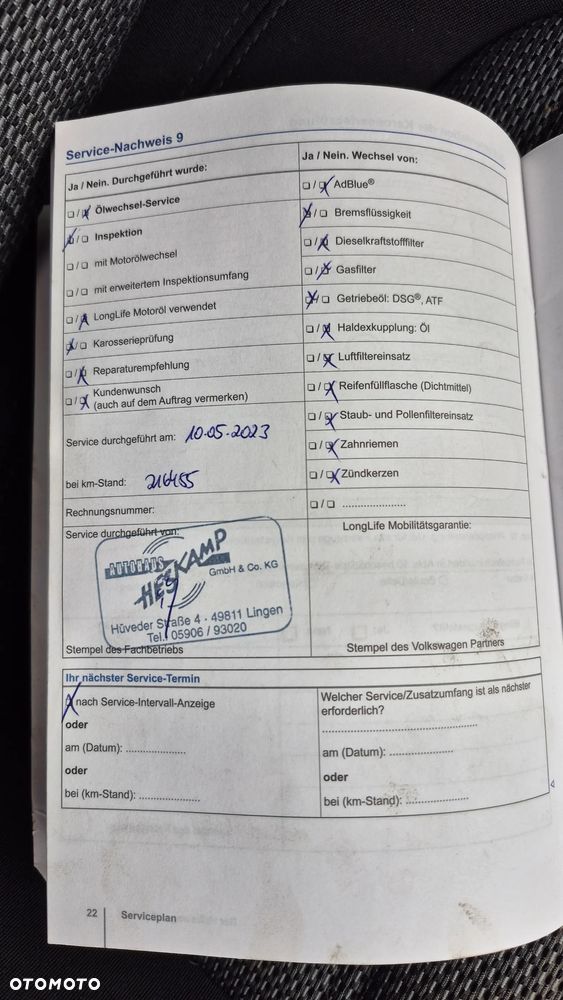 Service-Nachweis 9
Ja / Nein. Durchgeführt wurde:
Ölwechsel-Service
Inspektion
mit Motorölwechsel
mit erweitertem Inspektionsumfang
LongLife Motoröl verwendet
Karosserieprüfung
Reparaturempfehlung
Kundenwunsch
(auch auf dem Auftrag vermerken)
Service durchgeführt am: 10.05.2023
bei km-Stand: 216455
Rechnungsnummer:
Service durchgeführt von:
AUTOHAUS
HESKAMP
GmbH & Co. KG
Hüveder Straße 4 · 49811 Lingen
Tel. 05906 / 93020
Stempel des Fachbetriebs
Ja / Nein. Wechsel von:
AdBlue®
Bremsflüssigkeit
Dieselkraftstofffilter
Gasfilter
Getriebeöl: DSG®, ATF
Haldexkupplung: Öl
Luftfiltereinsatz
Reifenfüllflasche (Dichtmittel)
Staub- und Pollenfiltereinsatz
Zahnriemen
Zündkerzen
.....................
LongLife Mobilitätsgarantie:
Stempel des Volkswagen Partners
Ihr nächster Service-Termin
nach Service-Intervall-Anzeige
oder
am (Datum): ....................
oder
bei (km-Stand): ....................
Welcher Service/Zusatzumfang ist als nächster
erforderlich?
..................................................
am (Datum): .....................
oder
bei (km-Stand): .....................
22
Serviceplan
OTOMOTO